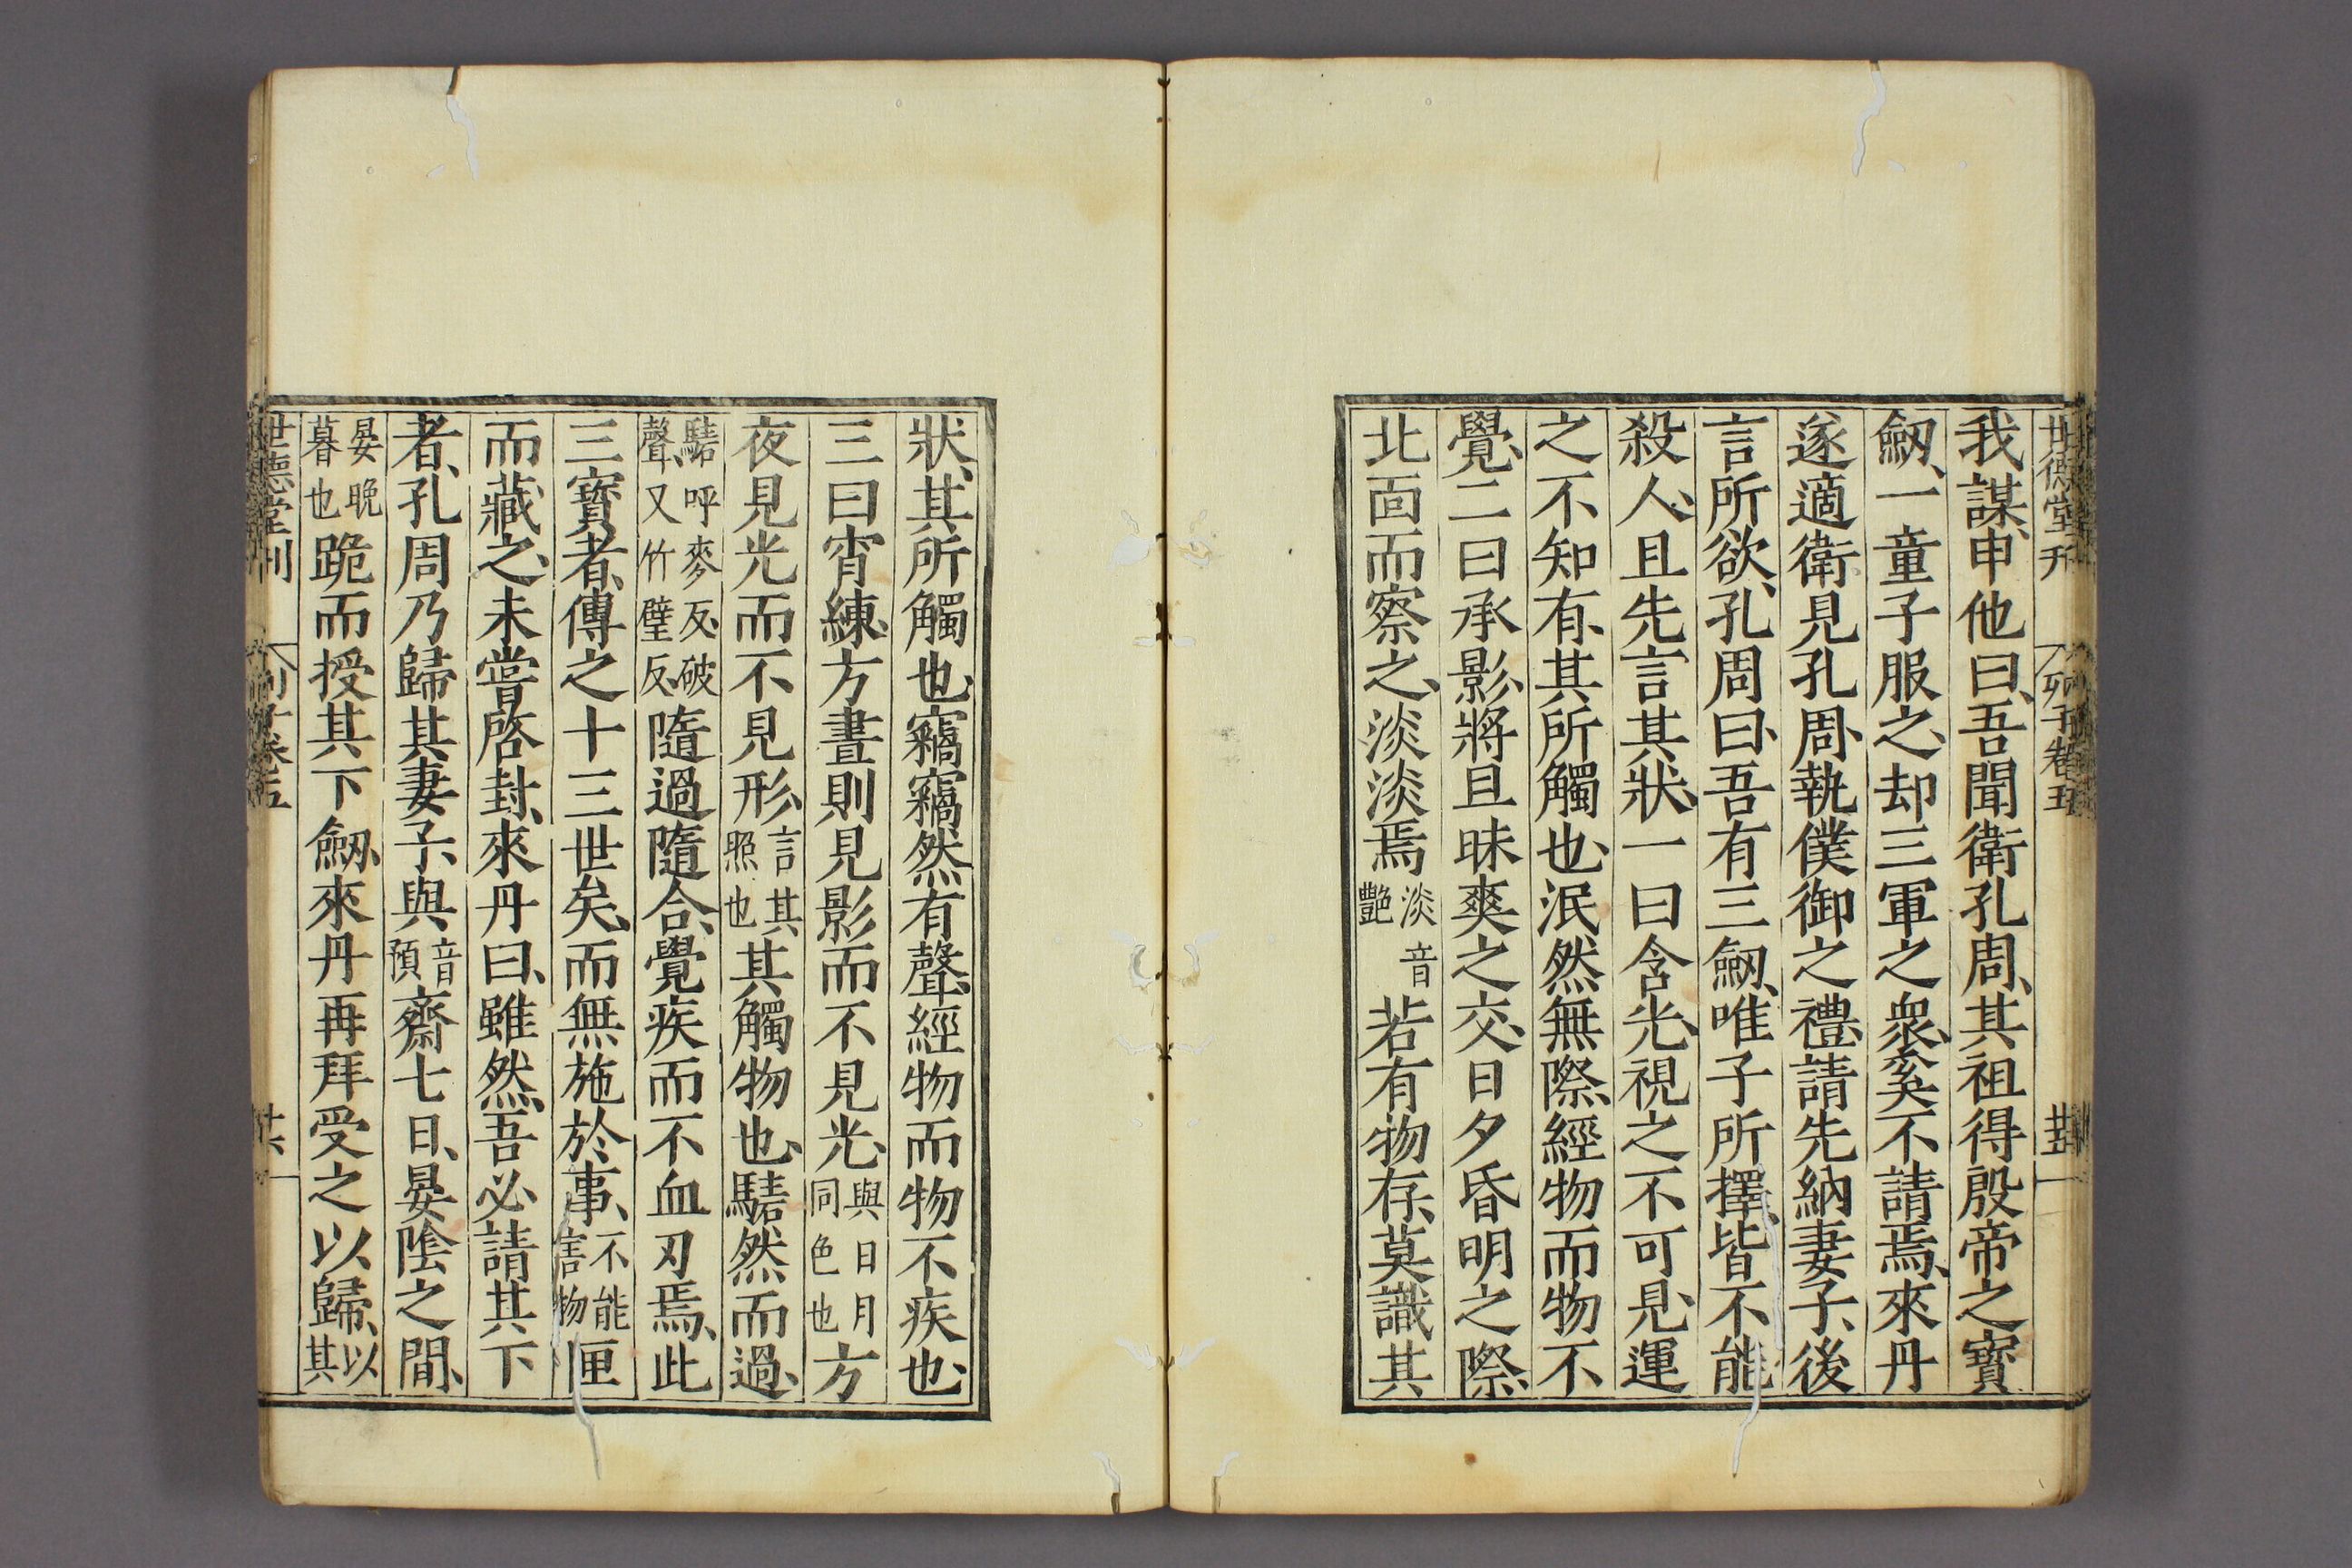 世德堂刊 列子卷五 廿五
我謀、申他曰、吾聞衛孔周、其祖得殷帝之寶
劒、一童子服之、却三軍之衆、奚不請焉、來丹
遂適衛見孔周、執僕御之禮、請先納妻子、後
言所欲、孔周曰、吾有三劒、唯子所擇、皆不能
殺人、且先言其狀、一曰含光、視之不可見、運
之不知有、其所觸也、泯然無際、經物而物不
覺、二曰承影、將且昧爽之交、日夕昏明之際、
北面而察之、淡淡焉淡音艷若有物存、莫識其
狀、其所觸也、竊竊然有聲、經物而物不疾也、
三曰宵練、方晝則見影而不見光、與日月同色也方
夜見光而不見形、言其照也其觸物也、騞然而過、
騞呼麥反、破聲、又竹璧反、隨過隨合、覺疾而不血刃焉、此
三寶者、傳之十三世矣、而無施於事、不能害物匣
而藏之、未嘗啓封、來丹曰、雖然、吾必請其下
者、孔周乃歸其妻子、與音預齋七日、晏陰之間、
晏晚暮也跪而授其下劒、來丹再拜受之以歸、以其
世德堂刊 列子卷五 廿六